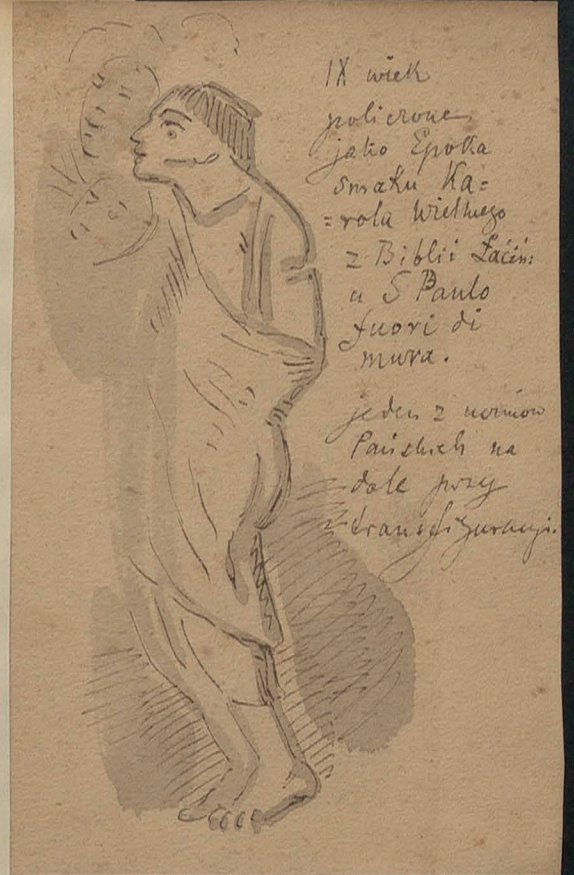 IX wiek
policzone
jako Epoka
smaku Ka=
=rola Wielkiego
z Biblii Łaciń:
u S Paulo
fuori di
mura.
jeden z uczniów
Pańskich na
dole przy
transfiguracji.